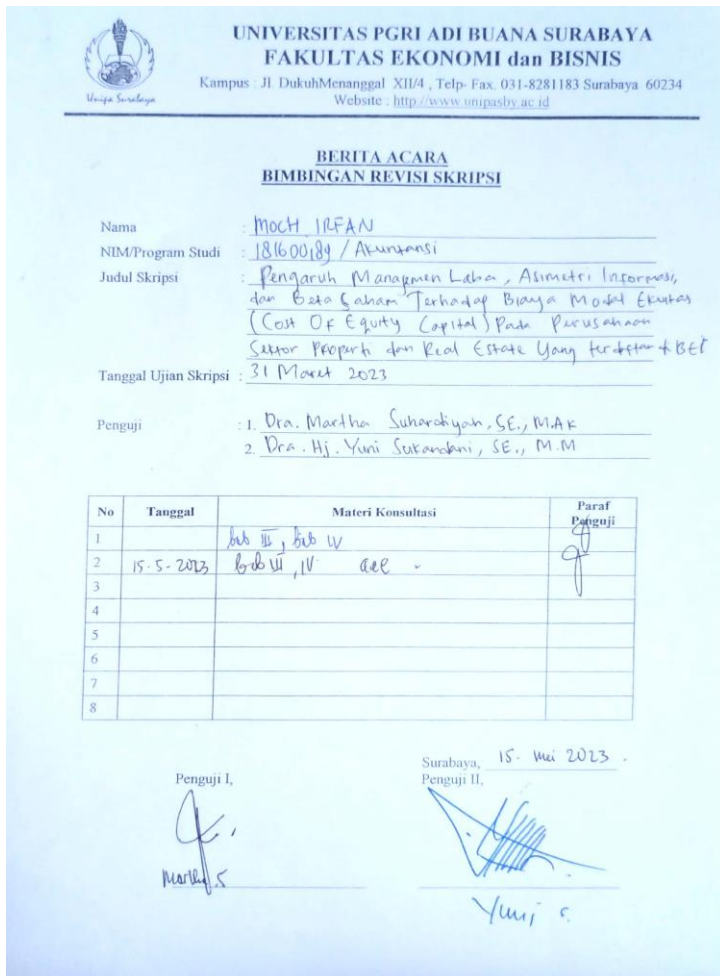 UNIVERSITAS PGRI ADI BUANA SURABAYA
FAKULTAS EKONOMI dan BISNIS
Kampus : Jl. DukuhMenanggal XII/4 , Telp- Fax. 031-8281183 Surabaya 60234
Website : http://www.unipasby.ac.id
Unipa Surabaya
BERITA ACARA
BIMBINGAN REVISI SKRIPSI
Nama : MOCH IRFAN
NIM/Program Studi : 181600189 / Akuntansi
Judul Skripsi : Pengaruh Manajmen Laba, Asimetri Informasi,
dan Beta Saham Terhadap Biaya Modal Ekuitas
(Cost Of Equity Capital) Pada Perusahaan
Sektor Properti dan Real Estate Yang terdaftar di BEI
Tanggal Ujian Skripsi : 31 Maret 2023
Penguji : 1. Dra. Martha Suhardiyah, SE., M.AK
2. Dra. Hj. Yuni Sukandani, SE., M.M
No Tanggal Materi Konsultasi Paraf Penguji
1 bab III, bab IV
2 15-5-2023 bab III, IV acc
3
4
5
6
7
8
Surabaya, 15. Mei 2023.
Penguji I, Penguji II,
Martha S
Yuni S.